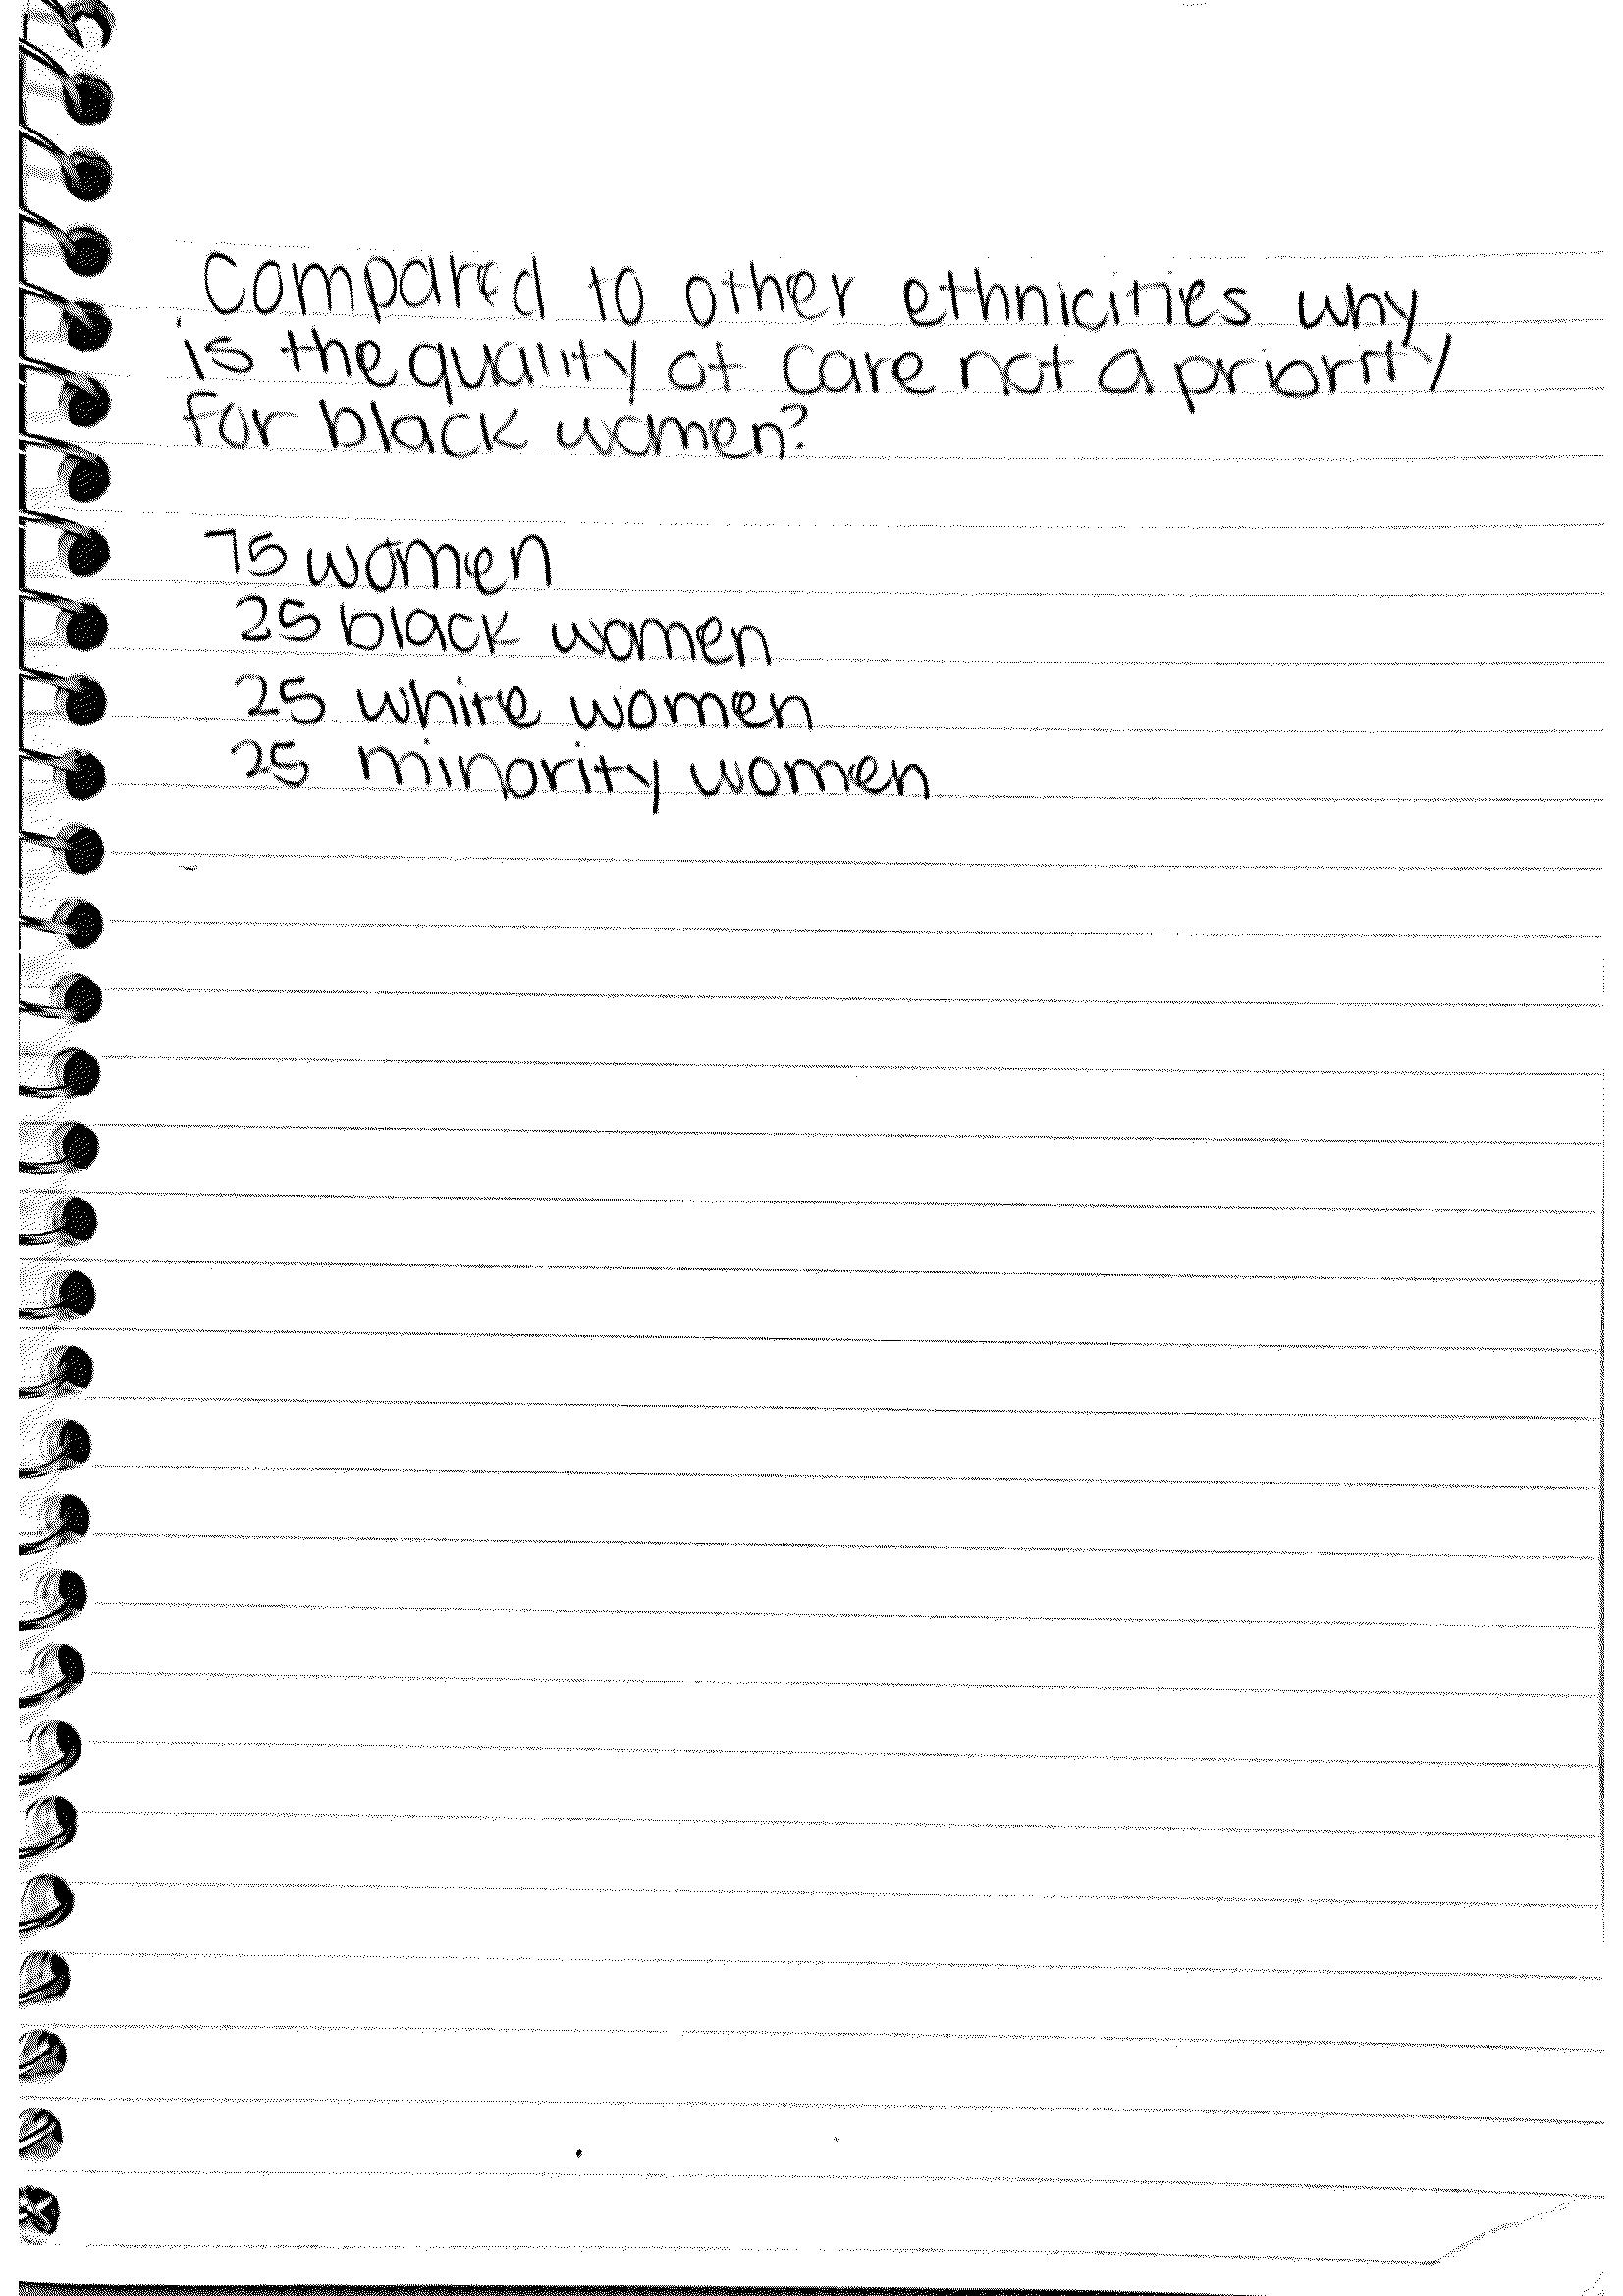 Compared to other ethnicities why
is the quality of care not a priority
for black women?
75 women
25 black women
25 white women
25 minority women